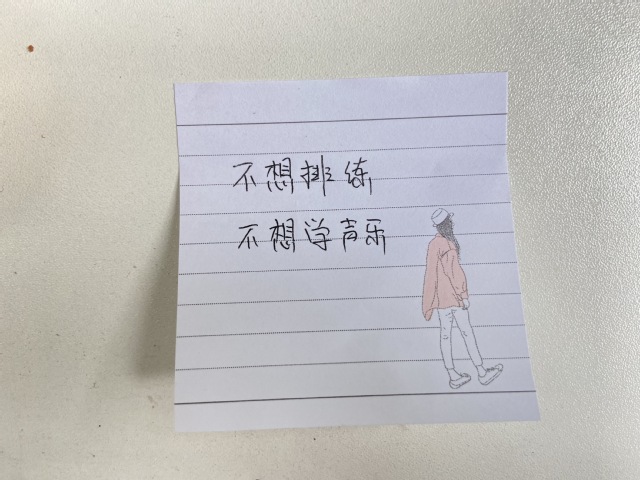 不想排练
不想学声乐